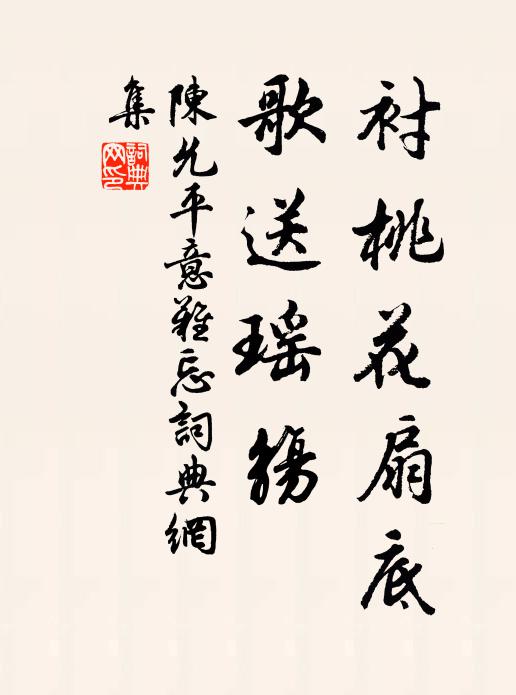 衬桃花扇底
歌送瑶觴
陳允平意難忘詞典網
集
詞典網印